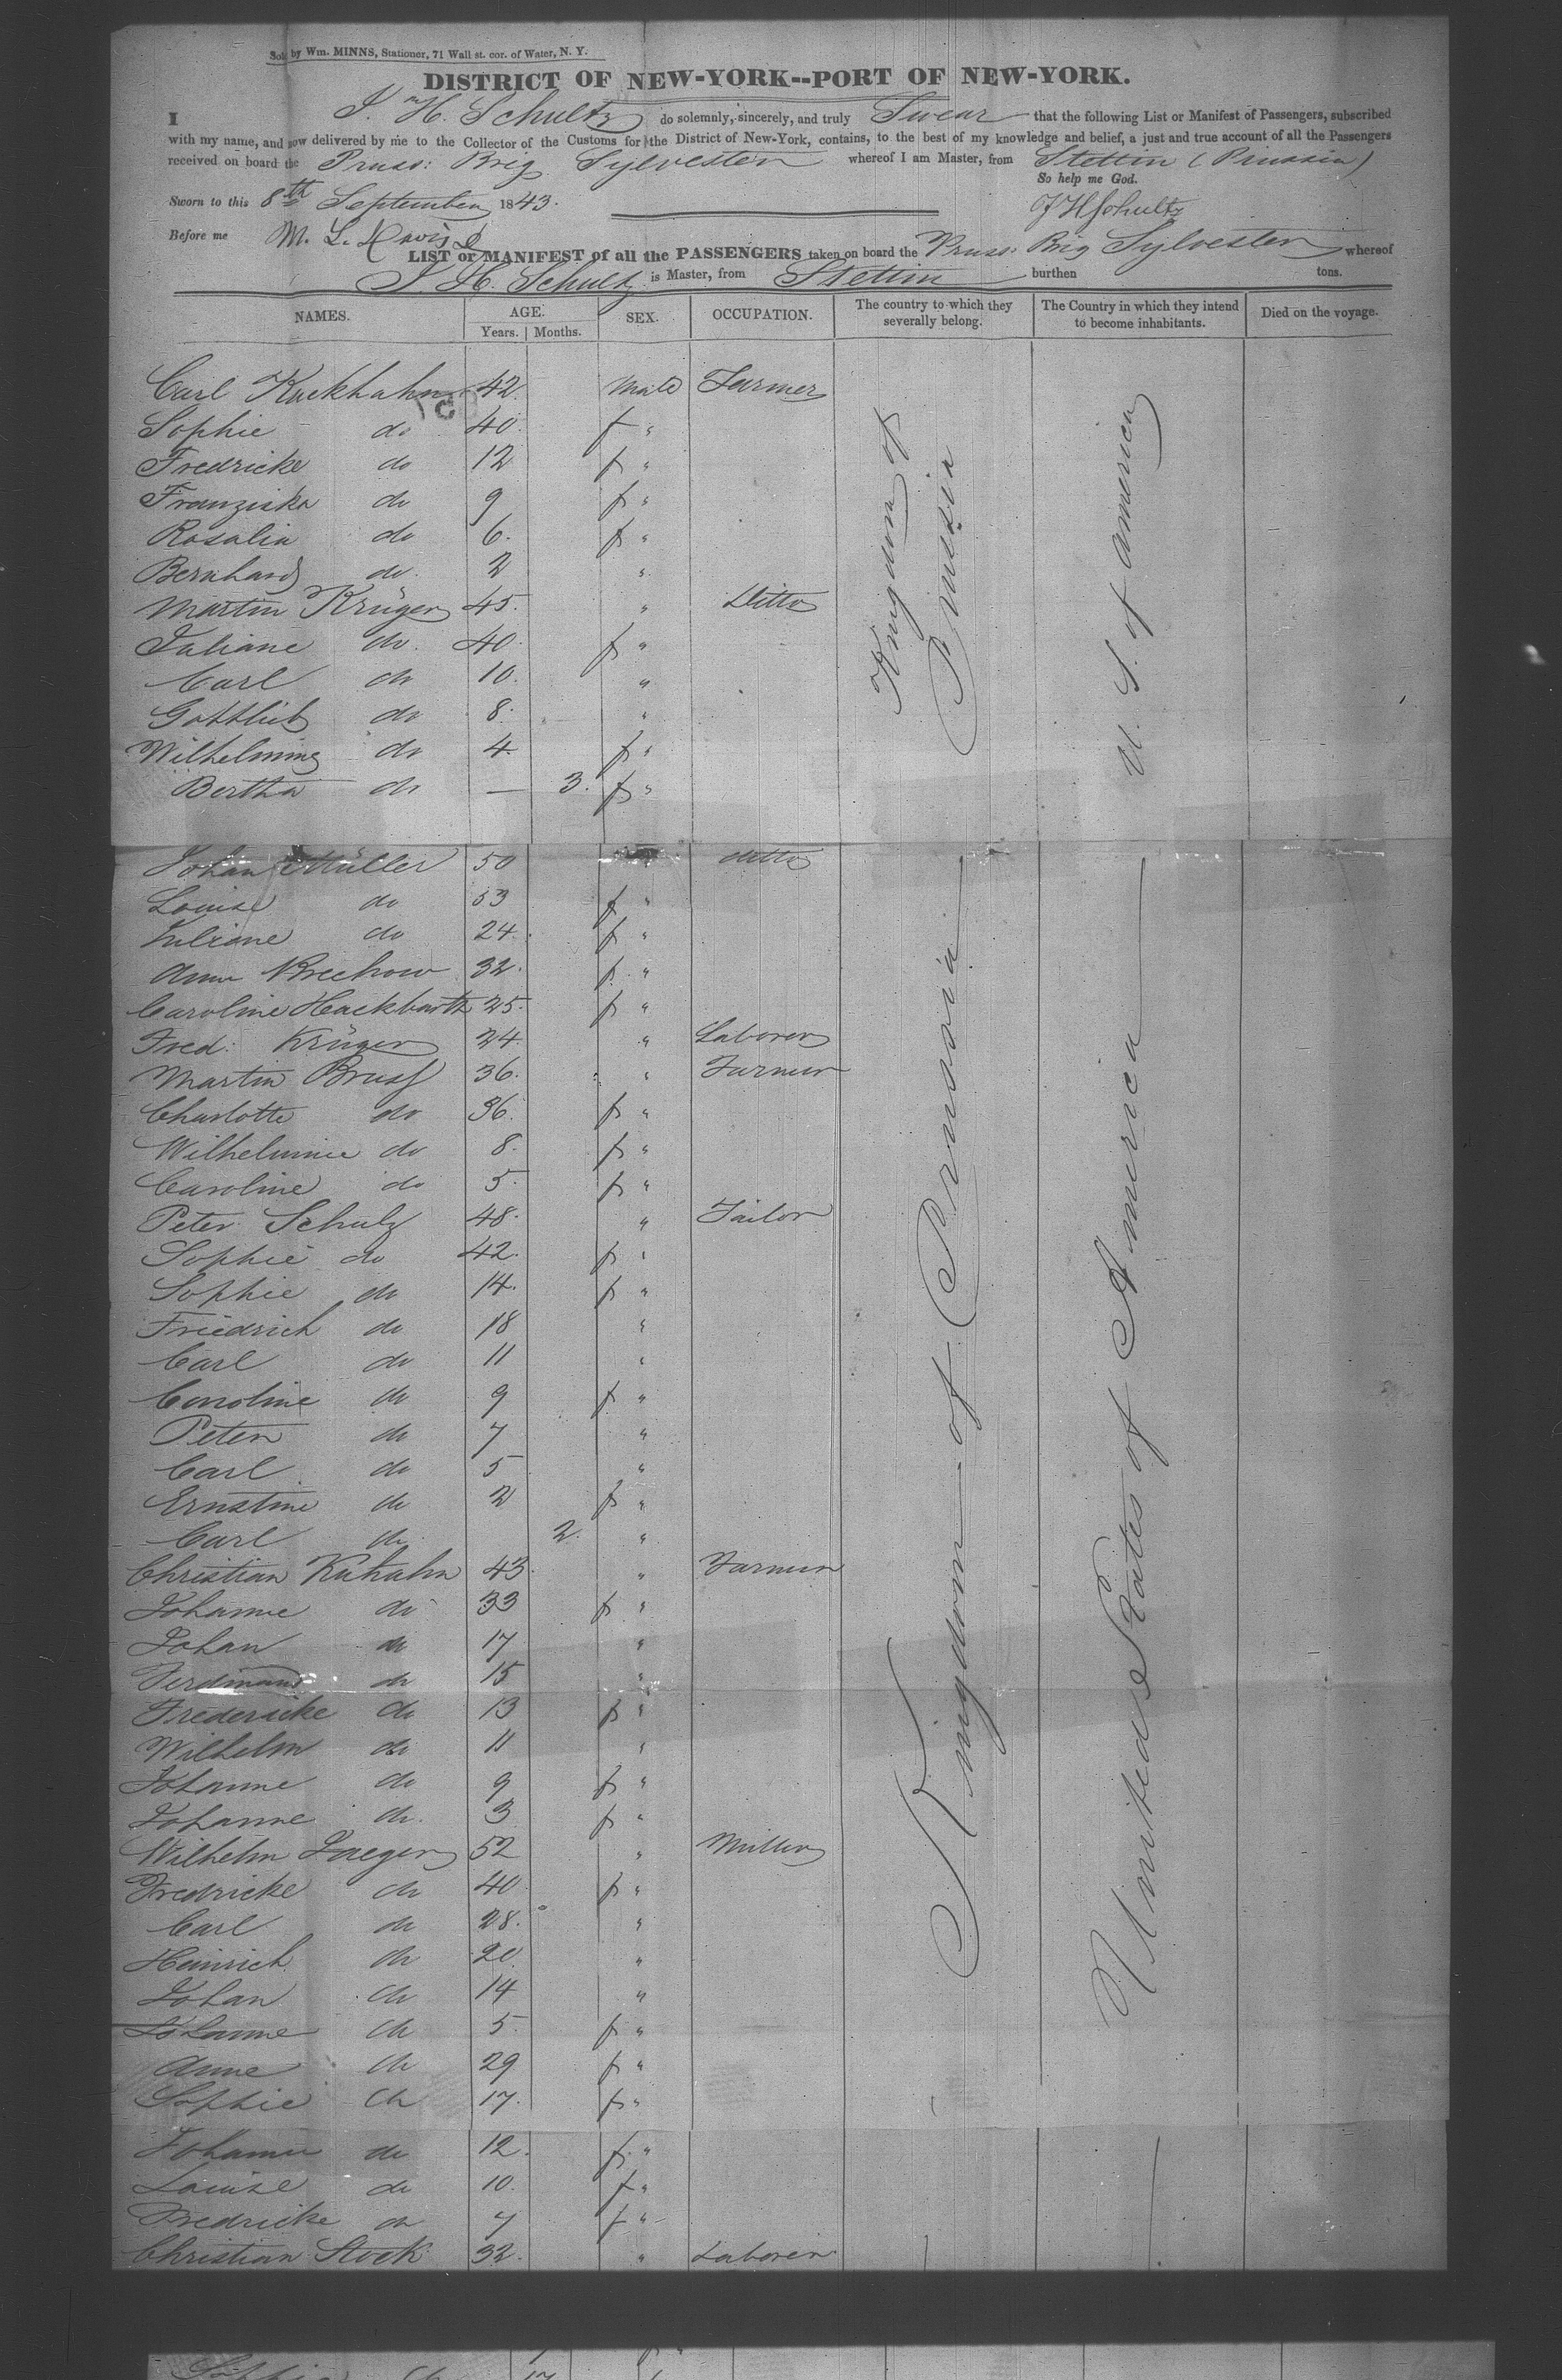 Sold by Wm. MINNS, Stationer, 71 Wall st. cor. of Water, N. Y.
DISTRICT OF NEW-YORK--PORT OF NEW-YORK.
I J. H. Schultz do solemnly, sincerely, and truly Swear that the following List or Manifest of Passengers, subscribed
with my name, and now delivered by me to the Collector of the Customs for the District of New-York, contains, to the best of my knowledge and belief, a just and true account of all the Passengers
received on board the Pruss: Brig Sylvester whereof I am Master, from Stettin (Prussia)
So help me God.
Sworn to this 8th September 1843.
J H Schultz
Before me M. L. Davis
LIST or MANIFEST of all the PASSENGERS taken on board the Pruss: Brig Sylvester whereof
J. H. Schultz is Master, from Stettin burthen tons.
NAMES. AGE. Years. Months. SEX. OCCUPATION. The country to which they severally belong. The Country in which they intend to become inhabitants. Died on the voyage.
Carl Kuckhahn 42. Male Farmer
Sophie do 40. f "
Fredricke do 12 f "
Franziska do 9 f "
Rosalia do 6. f "
Bernhard do. 2 "
Martin Krüger 45. " Ditto
Juliane do. 40. f "
Carl do 10. "
Gottlieb do 8. "
Wilhelmine do 4. f "
Bertha do — 3. f "
Kingdom of Prussia
U. S. of America
Johan Müller 50 ditto
Louise do 53 f "
Juliane do 24. f "
Anna Brechow 32. f "
Caroline Hackbarth 25. f "
Fred: Krüger 24. " Laborer
Martin Bruss 36. " Farmer
Charlotte do 36. f "
Wilhelmine do 8. f "
Caroline do 5. f "
Peter Schulz 48. " Tailor
Sophie do 42. f "
Sophie do 14. f "
Friedrich do 18 "
Carl do 11 "
Caroline do 9 f "
Peter do 7 "
Carl do 5 "
Ernstine do 2 f "
Carl do 2. "
Christian Kuhahn 43. " Farmer
Johanne do 33 f "
Johan do 17 "
Ferdinand do 15 "
Fredericke do 13 f "
Wilhelm do 11 "
Johanne do 9 f "
Johanne do. 3 f "
Wilhelm Jaeger 52 " Miller
Fredricke do 40 f "
Carl do 28. "
Heinrich do 20. "
Johan do 14 "
Johanne do 5. f "
Anne do 29 f "
Sophie do 17. f "
Johanne do 12. f "
Louise do 10. f "
Fredricke do 7 f "
Christian Stock 32. " Laborer
Kingdom of Prussia
United States of America
Sophie do 17